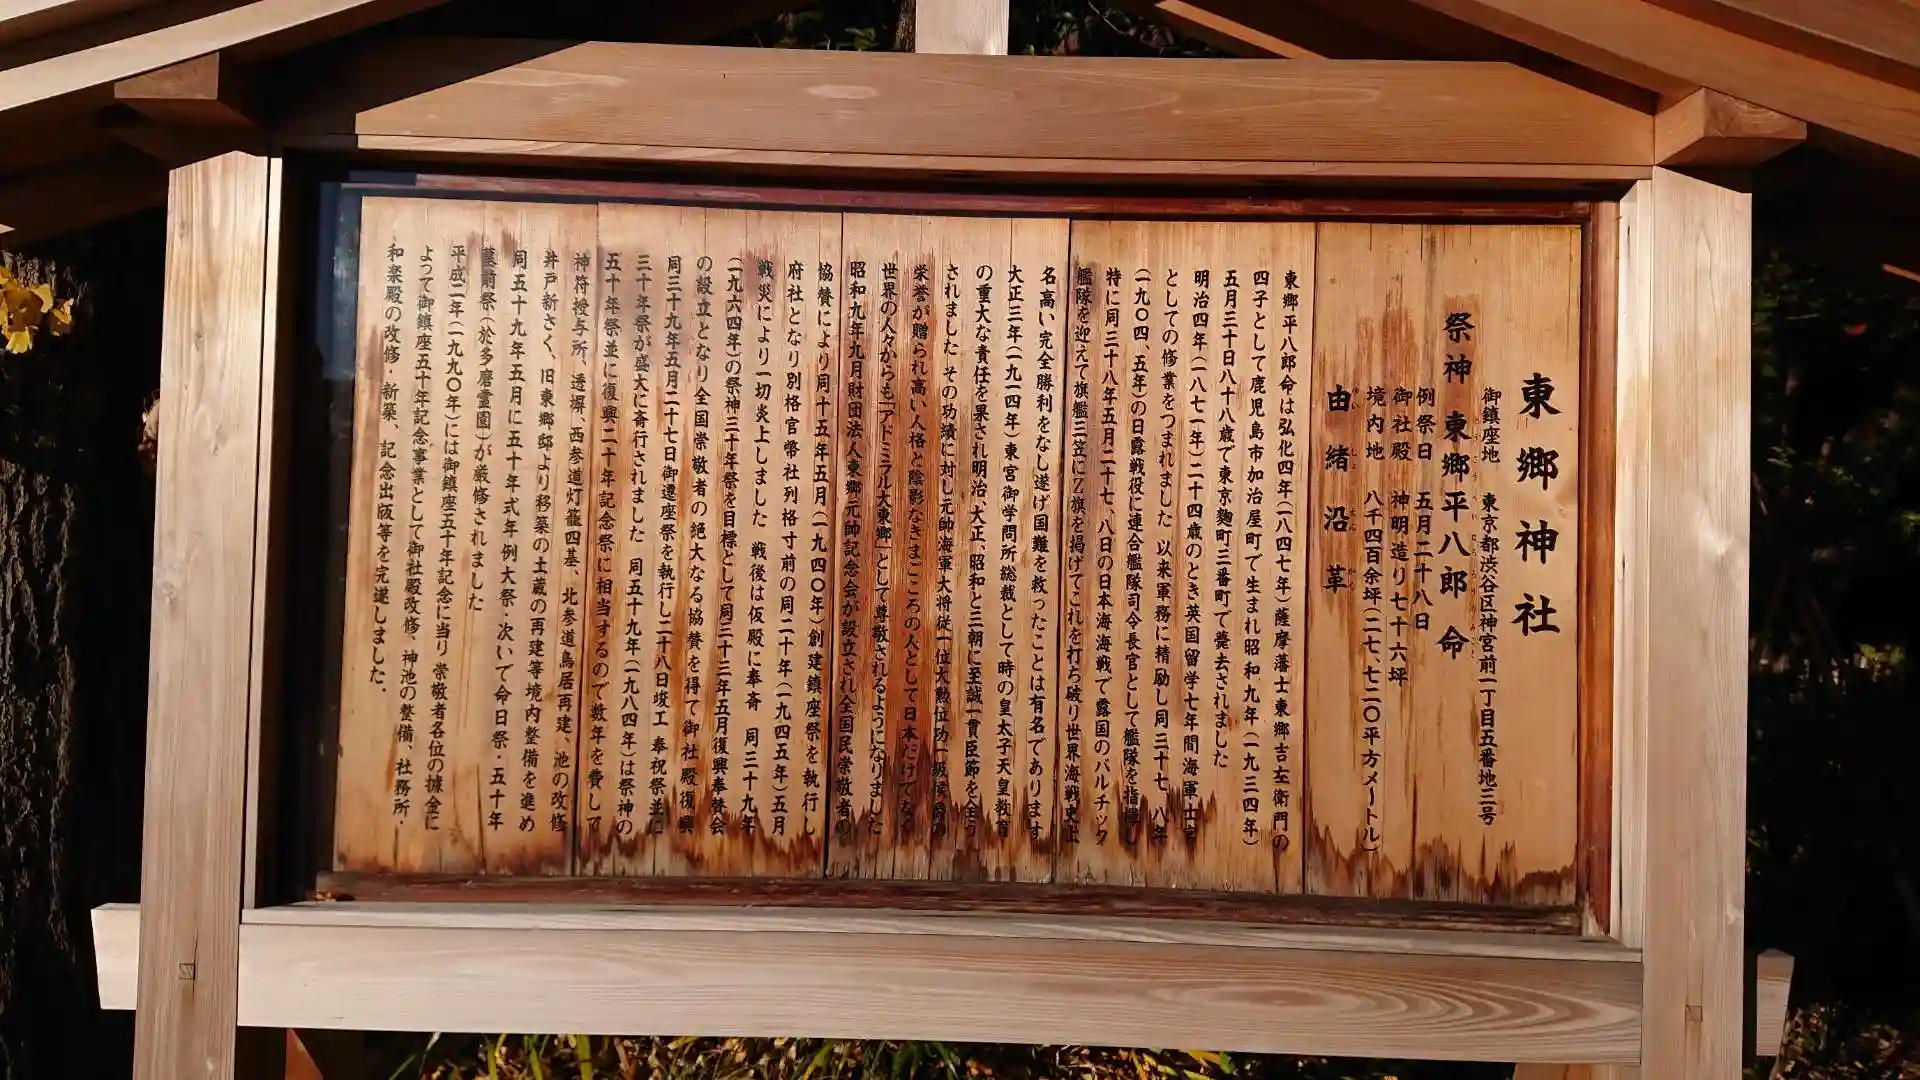 東郷神社
御鎮座地 東京都渋谷区神宮前一丁目五番地三号
祭神 東郷平八郎命
例祭日 五月二十八日
御社殿 神明造り七十六坪
境内地 八千四百余坪(二七、七二〇平方メートル)
由緒沿革
東郷平八郎命は弘化四年(一八四七年)薩摩藩士東郷吉左衛門の
四子として鹿児島市加治屋町で生まれ昭和九年(一九三四年)
五月三十日八十八歳で東京麹町三番町で薨去されました
明治四年(一八七一年)二十四歳のとき英国留学七年間海軍士官
としての修業をつまれました 以来軍務に精励し同三十七、八年
(一九〇四、五年)の日露戦役に連合艦隊司令長官として艦隊を指揮し
特に同三十八年五月二十七、八日の日本海海戦で露国のバルチック
艦隊を迎えて旗艦三笠にZ旗を掲げてこれを打ち破り世界海戦史上
名高い完全勝利をなし遂げ国難を救ったことは有名であります
大正三年(一九一四年)東宮御学問所総裁として時の皇太子天皇教育
の重大な責任を果され明治、大正、昭和と三朝に至誠一貫臣節を全う
されました その功績に対し元帥海軍大将従一位大勲位功一級侯爵の
栄誉が贈られ高い人格と陰影なきまごころの人として日本だけでなく
世界の人々からも「アドミラル大東郷」として尊敬されるようになりました
昭和九年九月財団法人東郷元帥記念会が設立され全国民崇敬者の
協賛により同十五年五月(一九四〇年)創建鎮座祭を執行し
府社となり別格官幣社列格寸前の同二十年(一九四五年)五月
戦災により一切炎上しました 戦後は仮殿に奉斎 同三十九年
(一九六四年)の祭神三十年祭を目標として同三十三年五月復興奉賛会
の設立となり全国崇敬者の絶大なる協賛を得て御社殿復興
同三十九年五月二十七日御遷座祭を執行し二十八日竣工奉祝祭並に
三十年祭が盛大に斎行されました 同五十九年(一九八四年)は祭神の
五十年祭並に復興二十年記念祭に相当するので数年を費して
神符授与所、透塀、西参道灯籠四基、北参道鳥居再建、池の改修
井戸新さく、旧東郷邸より移築の土蔵の再建等境内整備を進め
同五十九年五月に五十年式年例大祭・次いで命日祭・五十年
墓前祭(於多磨霊園)が厳修されました
平成二年(一九九〇年)には御鎮座五十年記念に当り崇敬者各位の據金に
よって御鎮座五十年記念事業として御社殿改修、神池の整備、社務所・
和楽殿の改修・新築、記念出版等を完遂しました.